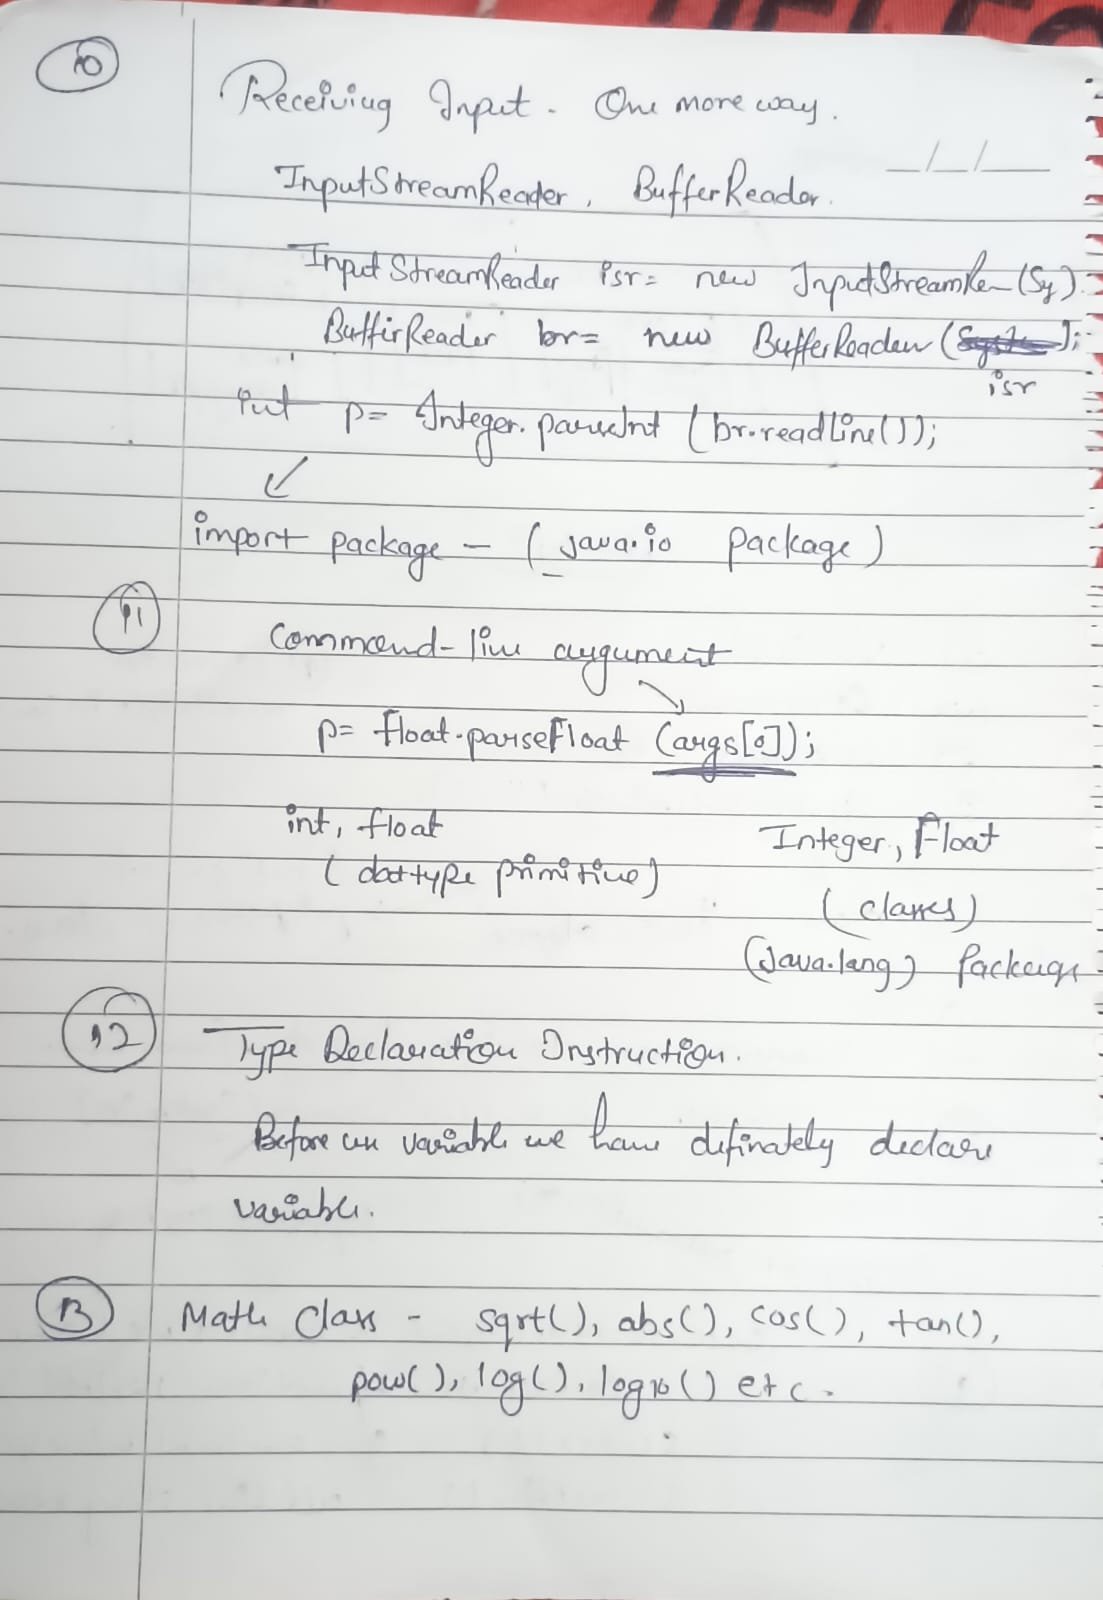 10
Receiving Input - One more way.
InputStreamReader, BufferReader.
InputStreamReader isr = new InputStreamRe (Sy).
BufferReader br = new BufferReader (
isr
);
int p = Integer.parseInt (br.readLine());
import package - (java.io package)
11
Command-line argument
p = float.parseFloat (args[0]);
int, float Integer, Float
(dattype primitive) (classes)
(Java.lang) Package
12 Type Declaration Instruction.
Before variable we have definately declare
variable.
13 Math Class - sqrt(), abs(), cos(), tan(),
pow(), log(), log10() etc.